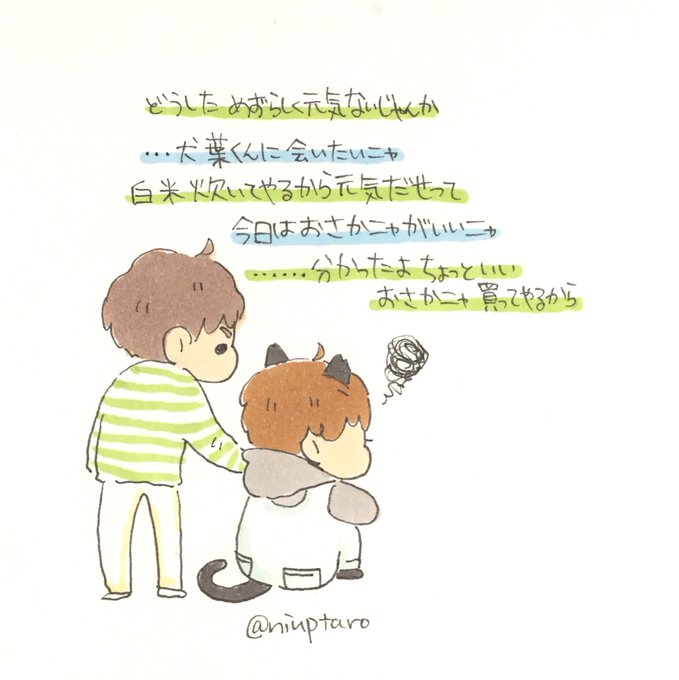 どうした めずらしく元気ないじゃんか
…犬葉くんに会いたいニャ
白米炊いてやるから元気だせって
今日はおさかニャがいいニャ
……分かったよ ちょっといい
おさかニャ 買ってやるから
@niuptaro